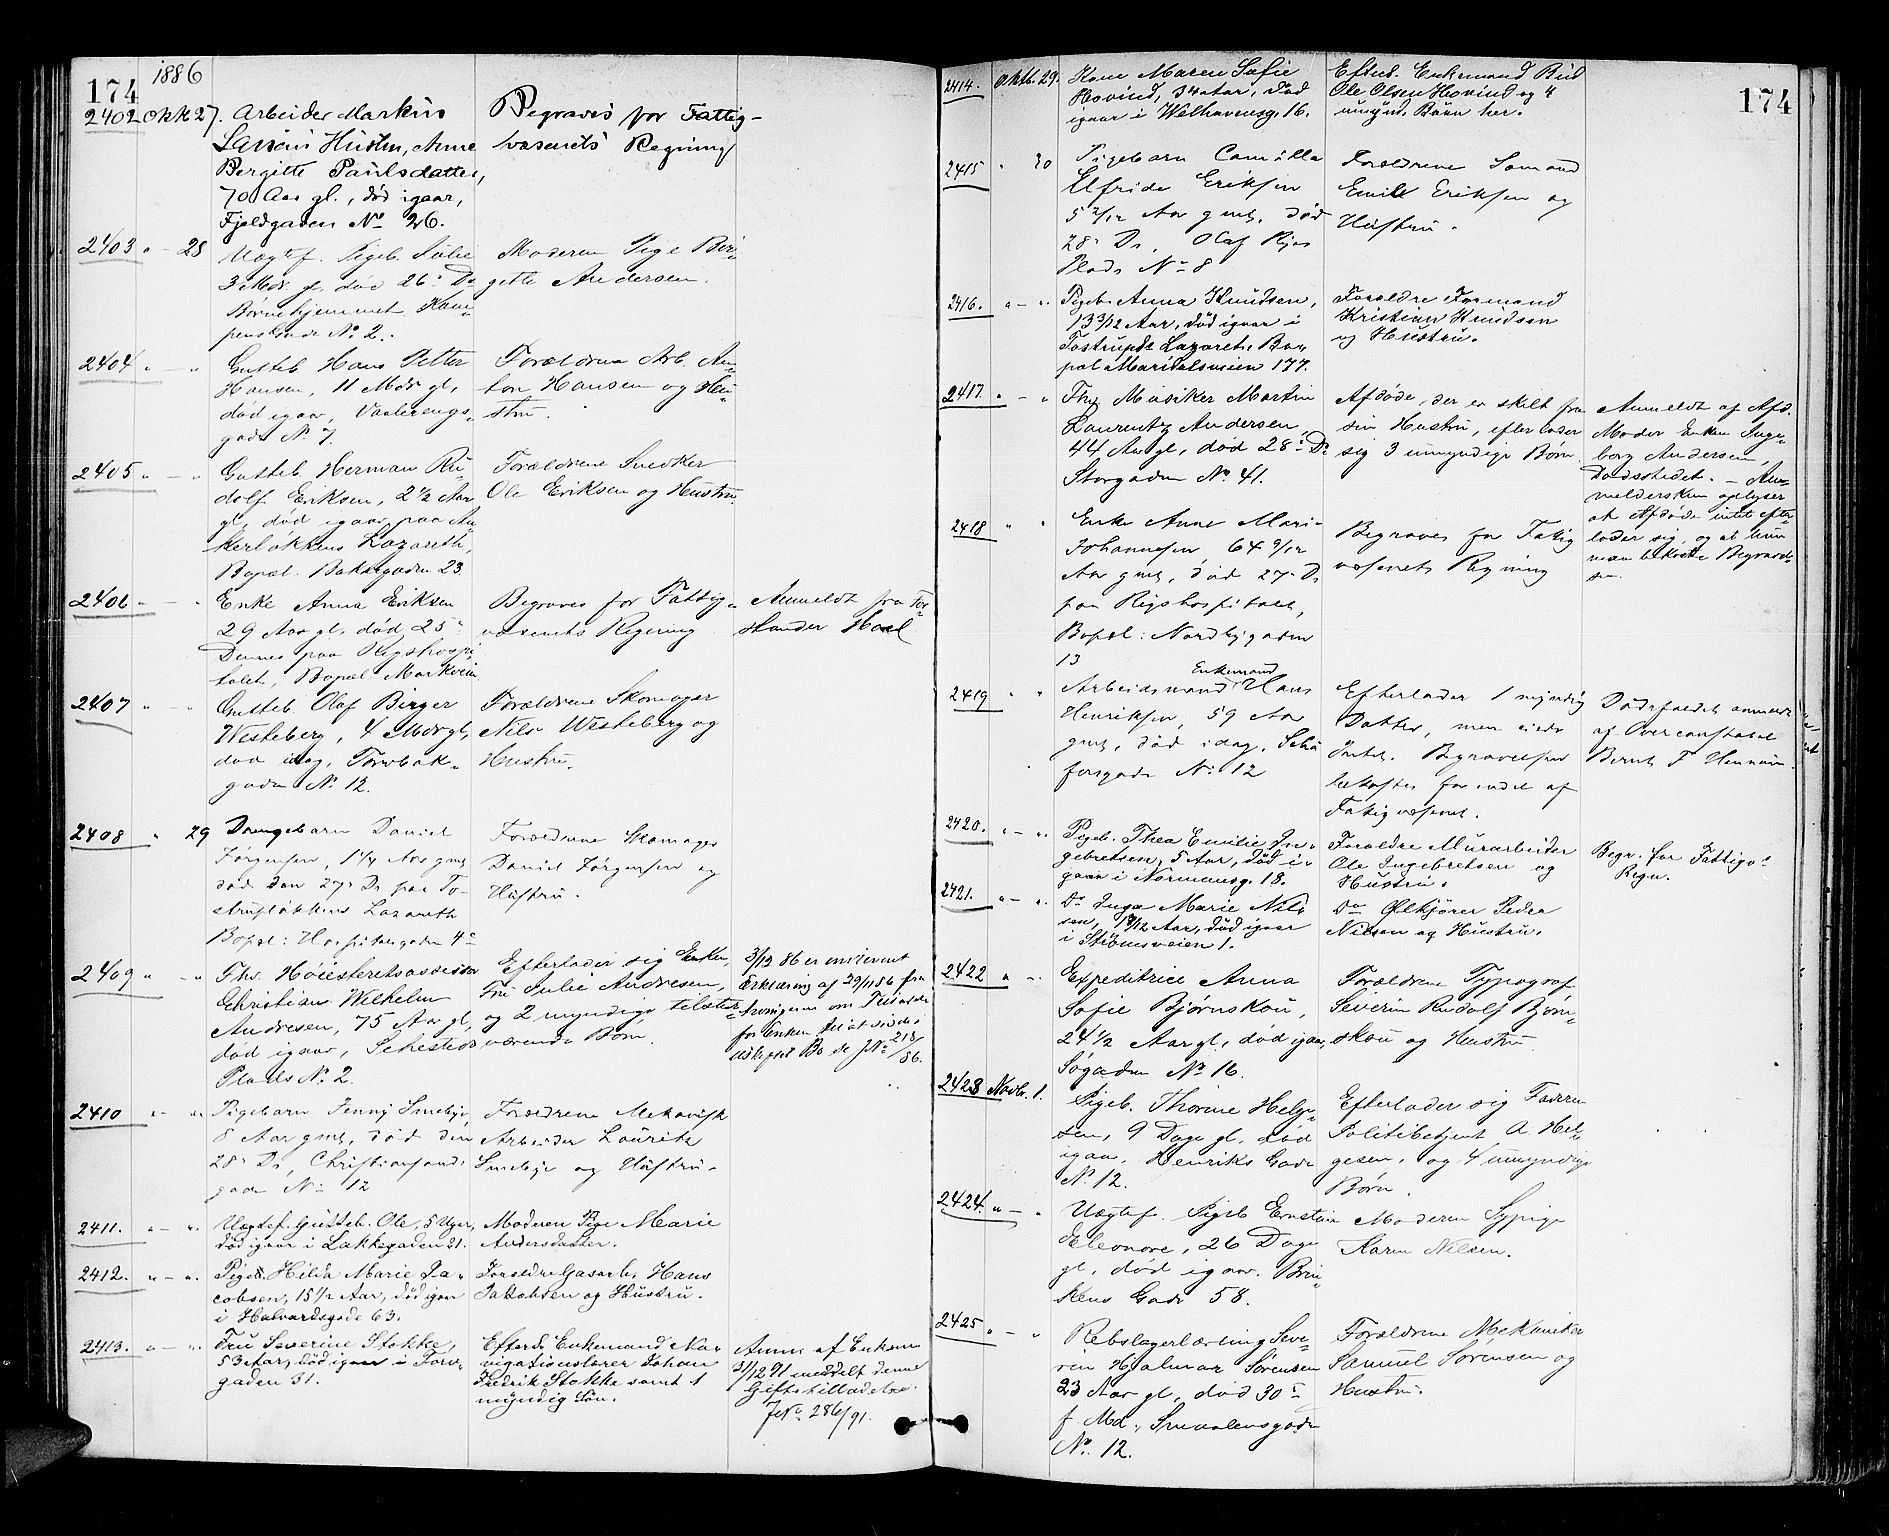 174
1886
2402 Okt 27. Arbeider Markus
Larsens Hustru, Anne
Bergitte Paulsdatter,
70 Aar gl., død igaar,
Fjeldgaden No 26.
Begraves for Fattig-
væsenets Regning
2403 " - 28 Uægtef. Pigeb. Julie
3 Mdr. gl. død 26de Ds
Børnehjemmet Kam-
pensgade No 2.
Moderen Pige Bir-
gitte Andersen.
2404 " - " Gutteb. Hans Petter
Hansen, 11 Mdr gl.,
død igaar, Vaalerengs-
gade No 7.
Forældrene Arb. An-
ton Hansen og Hu-
stru.
2405 " - " Gutteb Herman Ru-
dolf Eriksen, 2 1/2 Aar
gl, død igaar paa An-
kerløkkens Lazareth,
Bopæl. Bakkegaden 23.
Forældrene Snedker
Ole Eriksen og Hustru.
2406 " - " Enke Anna Eriksen
29 Aar gl. død 25de
Dennes paa Rigshospi-
talet, Bopæl Markvein
Begraves for Fattig-
væsenets Regning
Anmeldt fra For-
stander Hoel
2407 " - " Gutteb Olaf Birger
Westeberg, 4 Mdr gl,
død idag, Torvbak-
gaden No 12.
Forældrene Skomager
Nils Westeberg og
Hustru.
2408 " 29 Drengebarn Daniel
Jørgensen, 1 1/4 Aar gml
død den 27de Ds paa To-
strupløkkens Lazareth
Bopæl: Hospitalsgaden 4
Forældrene Skomager
Daniel Jørgensen og
Hustru.
2409 " - " Fhv. Høiesteretsassessor
Christian Wilhelm
Andresen, 75 Aar gl,
død igaar, Sehesteds
Plads No 2.
Efterlader sig Enken,
Fru Julie Andresen,
og 2 myndige tilstede-
værende Børn.
3/12 86 er indlevert
Erklæring af 29/11 86 fra
for Enken til at sidde i
uskiftet Bo se JNo 213/86.
2410 " - " Pigebarn Jenny Smebye,
8 Aar gml, død den
28de Ds, Christiansands
gade No 12
Forældrene Mekanisk
Arbeider Lauritz
Smebye og Hustru.
2411. " - " Uægtef. Gutteb. Ole, 5 Uger,
død igaar i Lakkegaden 21.
Moderen Pige Marie
Andersdatter.
2412. " - " Pigeb. Hilda Marie Ja-
cobsen, 15 1/2 Aar, død igaar
i Halvardsgade 63.
Forældre Gasarb. Hans
Jakobsen og Hustru.
2413. " - " Fru Severine Stokke,
53 Aar, død igaar i Torv-
gaden 31.
Efterl. Enkemand Na-
vigationslærer Johan
Fredrik Stokke samt 1
myndig Søn.
Anm. af Enkem.
3/12 91 meddelt denne
Giftstilladelse.
JNo. 286/91.
174
2414. Oktb. 29. Kone Maren Sofie
Hovind, 34 Aar, død
igaar i Welhavensg. 16.
Efterl. Enkemand Bud
Ole Olsen Hovind og 4
umynd. Børn her.
2415 " 30 Pigebarn Camilla
Elfride Eriksen
5 2/12 Aar gml, død
28de Ds, Olaf Ryes
Plads No 8
Forældrene Sømand
Emil Eriksen og
Hustru.
2416. " - " Pigeb. Anna Knudsen,
13 3/12 Aar, død igaar i
Tostrups Lazaret. Bo-
pæl Maridalsveien 177.
Forældre Formand
Kristian Knudsen
og Hustru.
2417. " - " Fhv Musiker Martin
Laurentz Andersen
44 Aar gl, død 28de Ds
Storgaden No 41.
Afdøde, der er skilt fra
sin Hustru, efterlader
sig 3 umyndige Børn.
Anmeldt af Afd.
Moder Enken Inge-
borg Andersen,
Dødsstedet. - An-
meldersken oplyser
at Afdøde intet efter-
lader sig, og at hun
maa bekoste Begravel-
sen.
2418 " " Enke Anne Marie
Johannesen 64 9/12
Aar gml, død 27de Ds
paa Rigshospitalet,
Bopæl: Nordbygaden
13
Begraves for Fattig
væsenets Regning
2419 " " Arbeidsmand Enkemand Hans
Henriksen, 59 Aar
gml, død idag, Schou
forsgade No 12
Efterlader 1 myndig
Datter, men eier
Intet. Begravelsen
bekostes forendel af
Fattigvæsenet.
Dødsfaldet anmeldt
af Overconstabel
Bernt F Hennum.
2420. " - " Pigeb. Thea Emilie In-
gebretsen, 5 Aar, død i-
gaar i Normannsg. 18.
Forældre Murarbeider
Ole Ingebretsen og
Hustru.
Begr. for Fattigv.s
Regn.
2421. " - " Do Inga Marie Niel-
sen, 1 9/12 Aar, død igaar
i Strømsveien 1.
Do Ølkjører Peder
Nilsen og Hustru.
2422 " - Expeditrice Anna
Sofie Bjørnskou,
24 1/2 Aar gl., død igaar,
Søgaden No 16.
Forældrene Typograf
Severin Rudolf Bjørn-
skou og Hustru
2423 Novbr. 1. Pigeb. Thorine Helge-
sen, 9 Dage gl, død
igaar, Henriks Gade
No 12.
Efterlader sig Faderen
Politibetjent A. Hel-
gesen, og 4 umyndige
Børn.
2424. " - " Uægtef. Pigeb Ernstine
Eleonore, 26 Dage
gl, død igaar. Brin-
kens Gade 58.
Moderen Sypige
Karen Nilsen.
2425 " - " Rebslagerlærling Seve-
rin Hjalmar Sørensen
23 Aar gl, død 30te
f. Md., Smaalensgade
No. 12.
Forældrene Mekaniker
Samuel Sørensen og
Hustru.